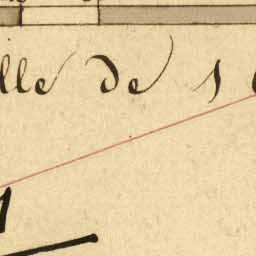 lle de 1
1